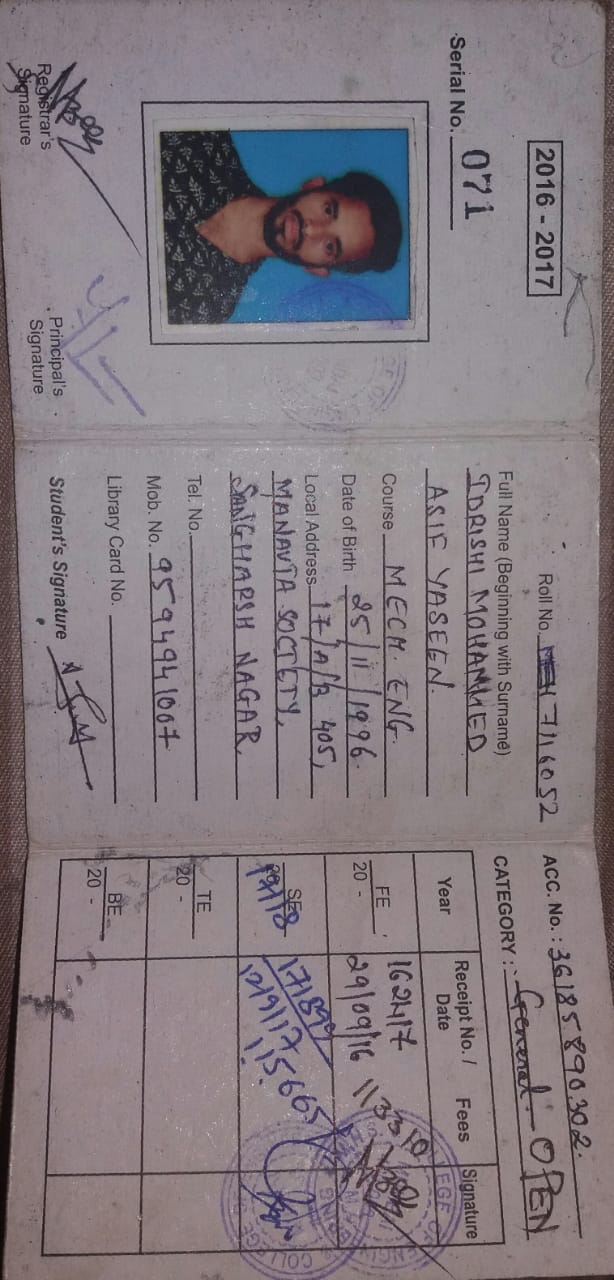 2016 - 2017
Serial No. 071
Registrar's
Signature
Principal's
Signature
Roll No. 7116052
Full Name (Beginning with Surname)
IDRISHI MOHAMMED
ASIF YASEEN.
Course MECH. ENG.
Date of Birth 25/11/1996.
Local Address 17/A/3 405,
MANAVTA SOCIETY,
SANGHARSH NAGAR.
Tel. No.
Mob. No. 9594941007
Library Card No.
Student's Signature
ACC. No. : 36185890302.
CATEGORY : General OPEN
Year Receipt No. / Date Fees Signature
FE 20 - 162417 29/09/16 113310
SE 171899 12/9/17 115665
TE 20 -
BE 20 -